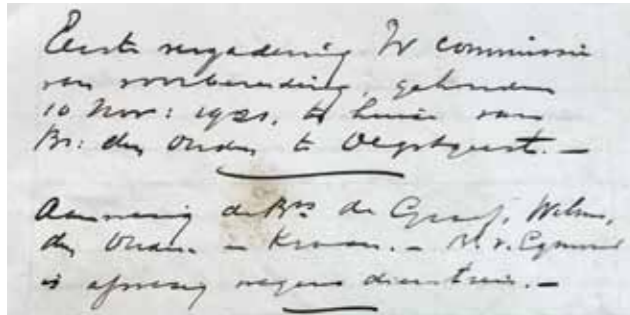 Eerste vergadering der commissie
van voorbereiding, gehouden
10 Nov: 1921, te huize van
Br: den Ouden te Oegstgeest. —
Aanwezig de Brs de Graaf, Wilms,
den Ouden. — Kroon. —
is afwezig wegens dienstreis. —